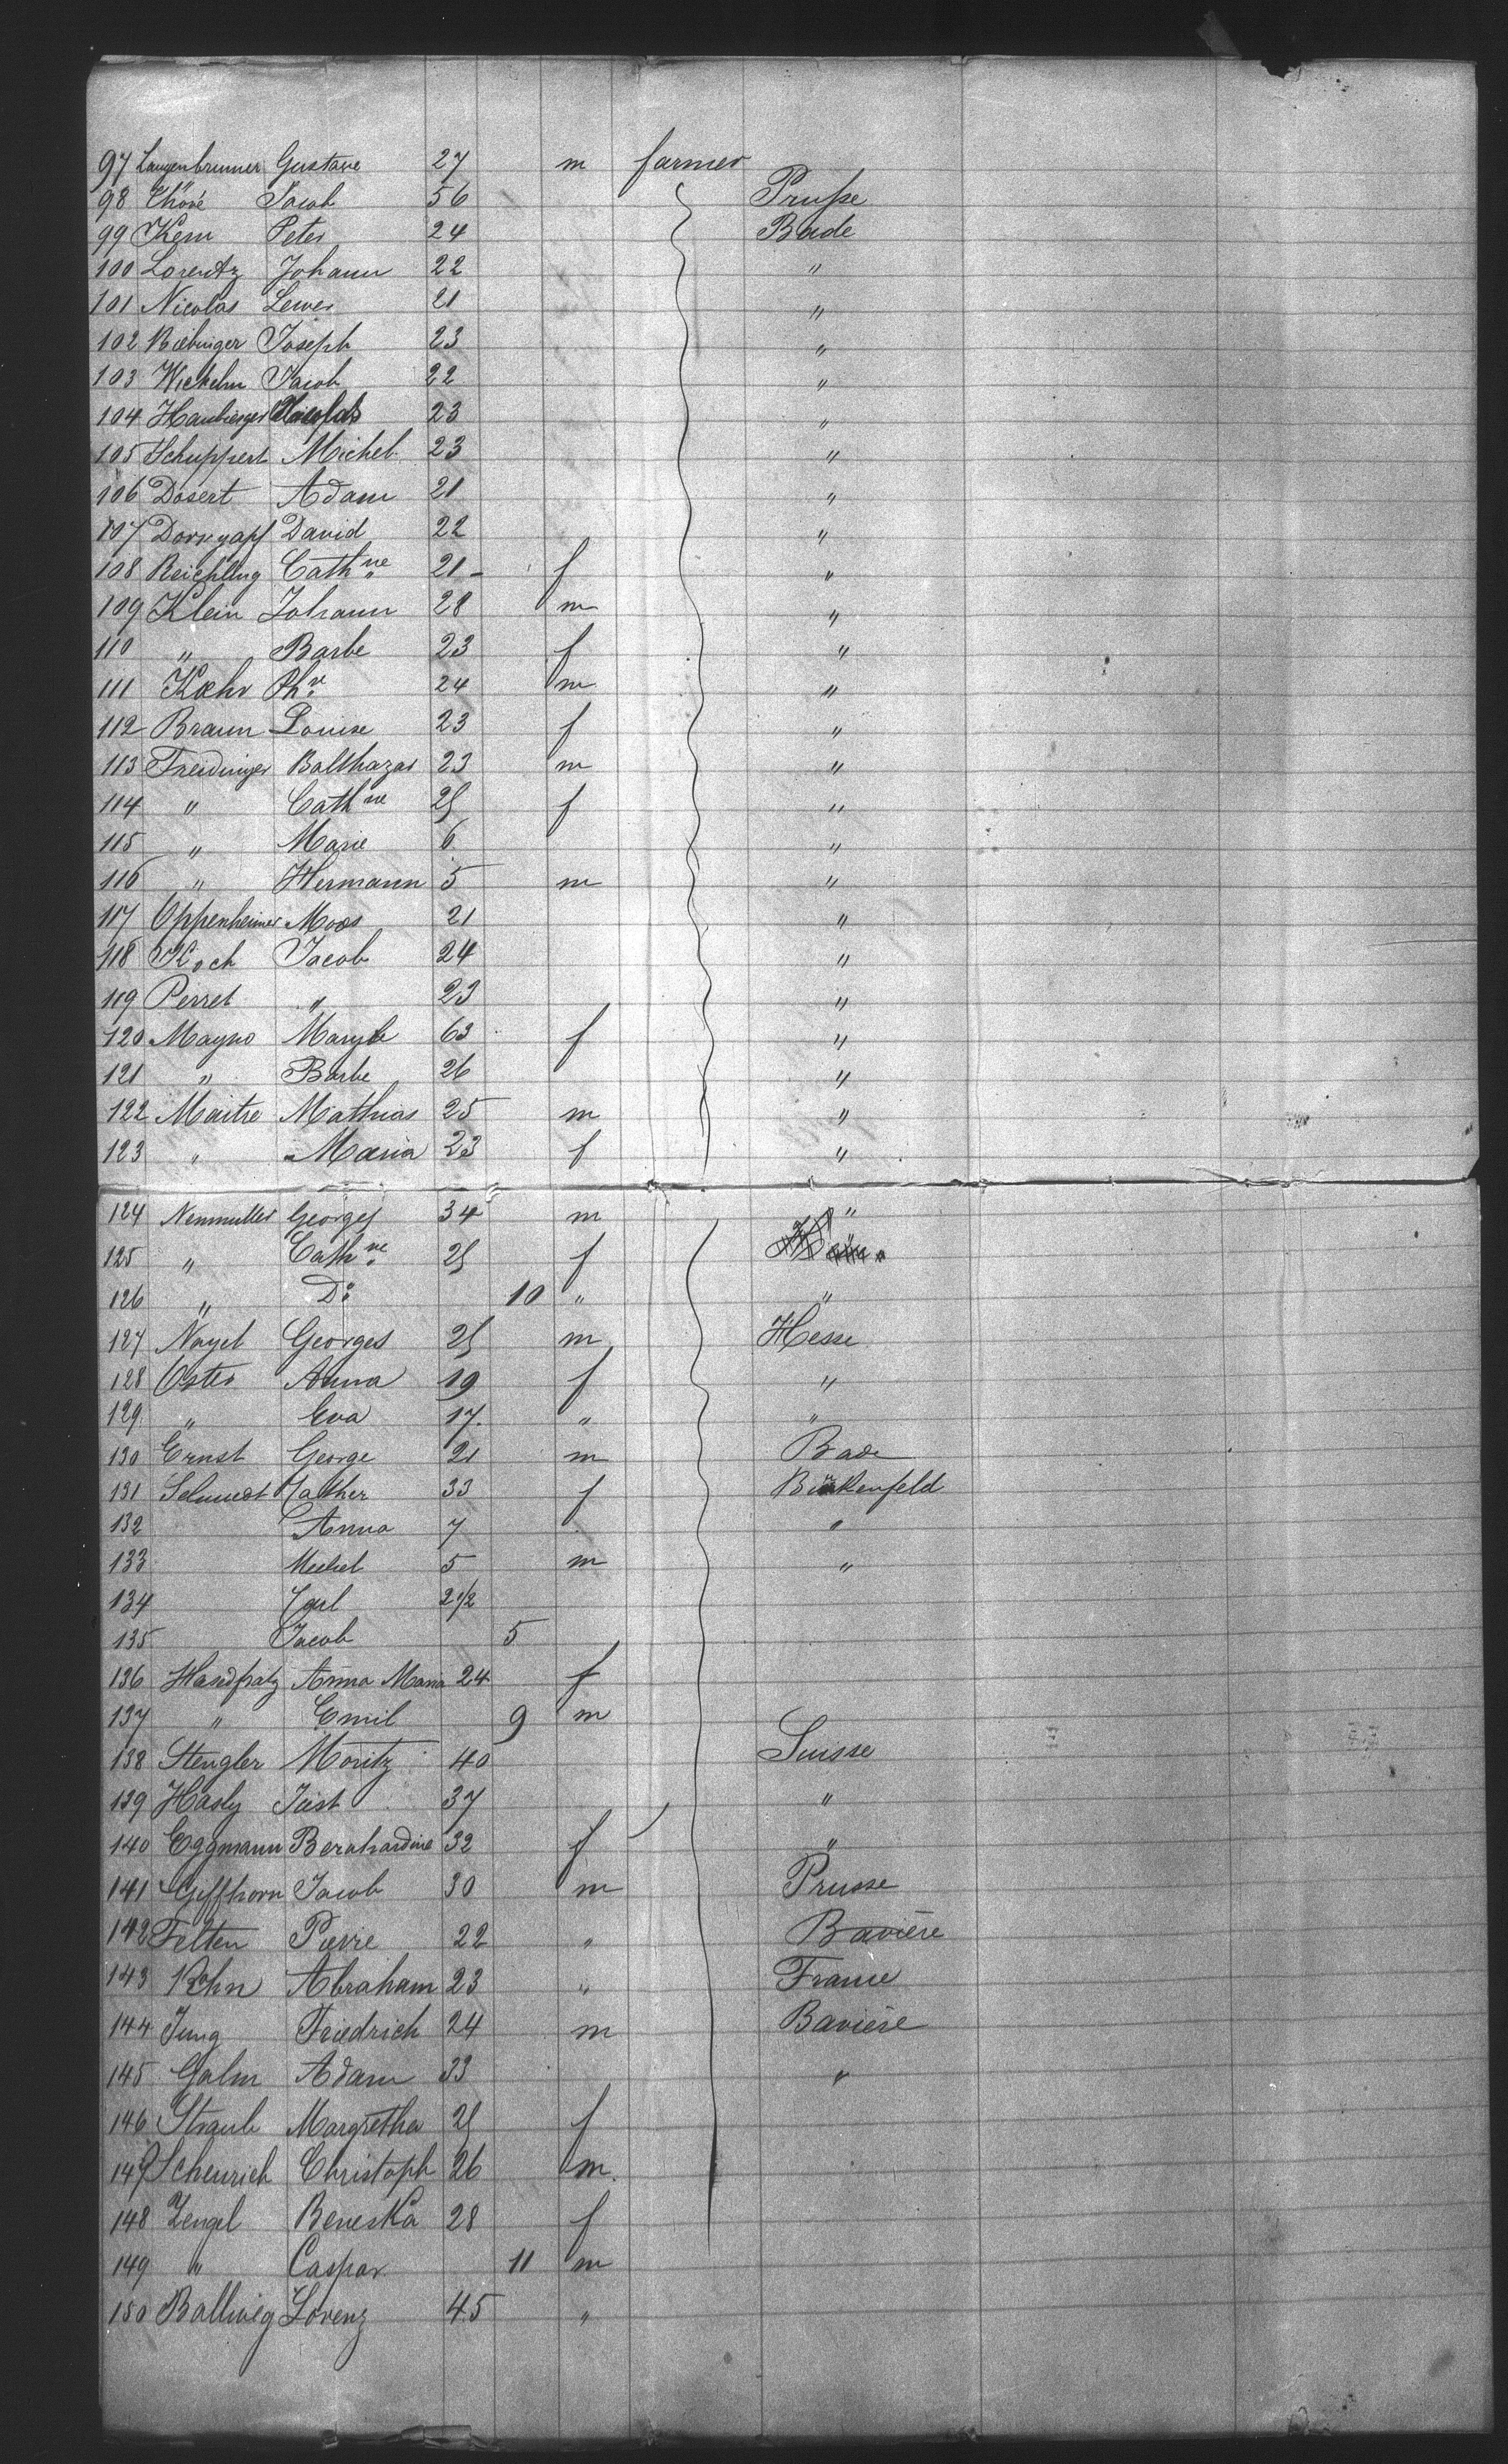 97 Langenbrunner Gustave 27 m farmer
98 Thöné Jacob 56 Prusse
99 Kern Peter 24 Bade
100 Lorentz Johann 22 "
101 Nicolas Lewer 21 "
102 Biebinger Joseph 23 "
103 Wickelm Jacob 22 "
104 23 "
105 Schuppert Michel 23 "
106 Dosert Adam 21 "
107 David 22 "
108 Reichling Cathne 21 - f "
109 Klein Johann 28 m "
110 " Barbe 23 f "
111 Kœhr Phe 24 m "
112 Braun Louise 23 f "
113 Freidinger Balthazar 23 m "
114 " Cathne 25 f "
115 " Marie 6 "
116 " Hermann 5 m "
117 Oppenheimer Moos 21 "
118 Koch Jacob 24 "
119 Perret " 23 "
120 Mayno 63 f "
121 " Barbe 26 "
122 Maitre Mathias 25 m "
123 " Maria 23 f "
124 Nenmuller Georges 34 m "
125 " Cathne 25 f
126 " Do 10 " "
127 Nagel Georges 25 m Hesse
128 Oster Anna 19 f "
129 " Eva 17 " "
130 Ernst George 21 m Bade
131 Schmidt Cather 33 f Birkenfeld
132 Anna 7 "
133 Michel 5 m "
134 Carl 2 1/2
135 Jacob 5
136 Anna Maria 24 f
137 " Emil 9 m
138 Stengler Moritz 40 Suisse
139 Hasly Jost 37 "
140 Eggmann Bernhardine 32 f "
141 Giffhorn Jacob 30 m Prusse
142 Felten Pierre 22 " Bavière
143 Kohn Abraham 23 " France
144 Jung Friedrich 24 m Bavière
145 Galm Adam 33 "
146 Straub Margretha 25 f
147 Scheurich Christoph 26 m
148 Zengel Beneska 28 f
149 " Caspar 11 m
150 Ballweg Lorenz 45 "